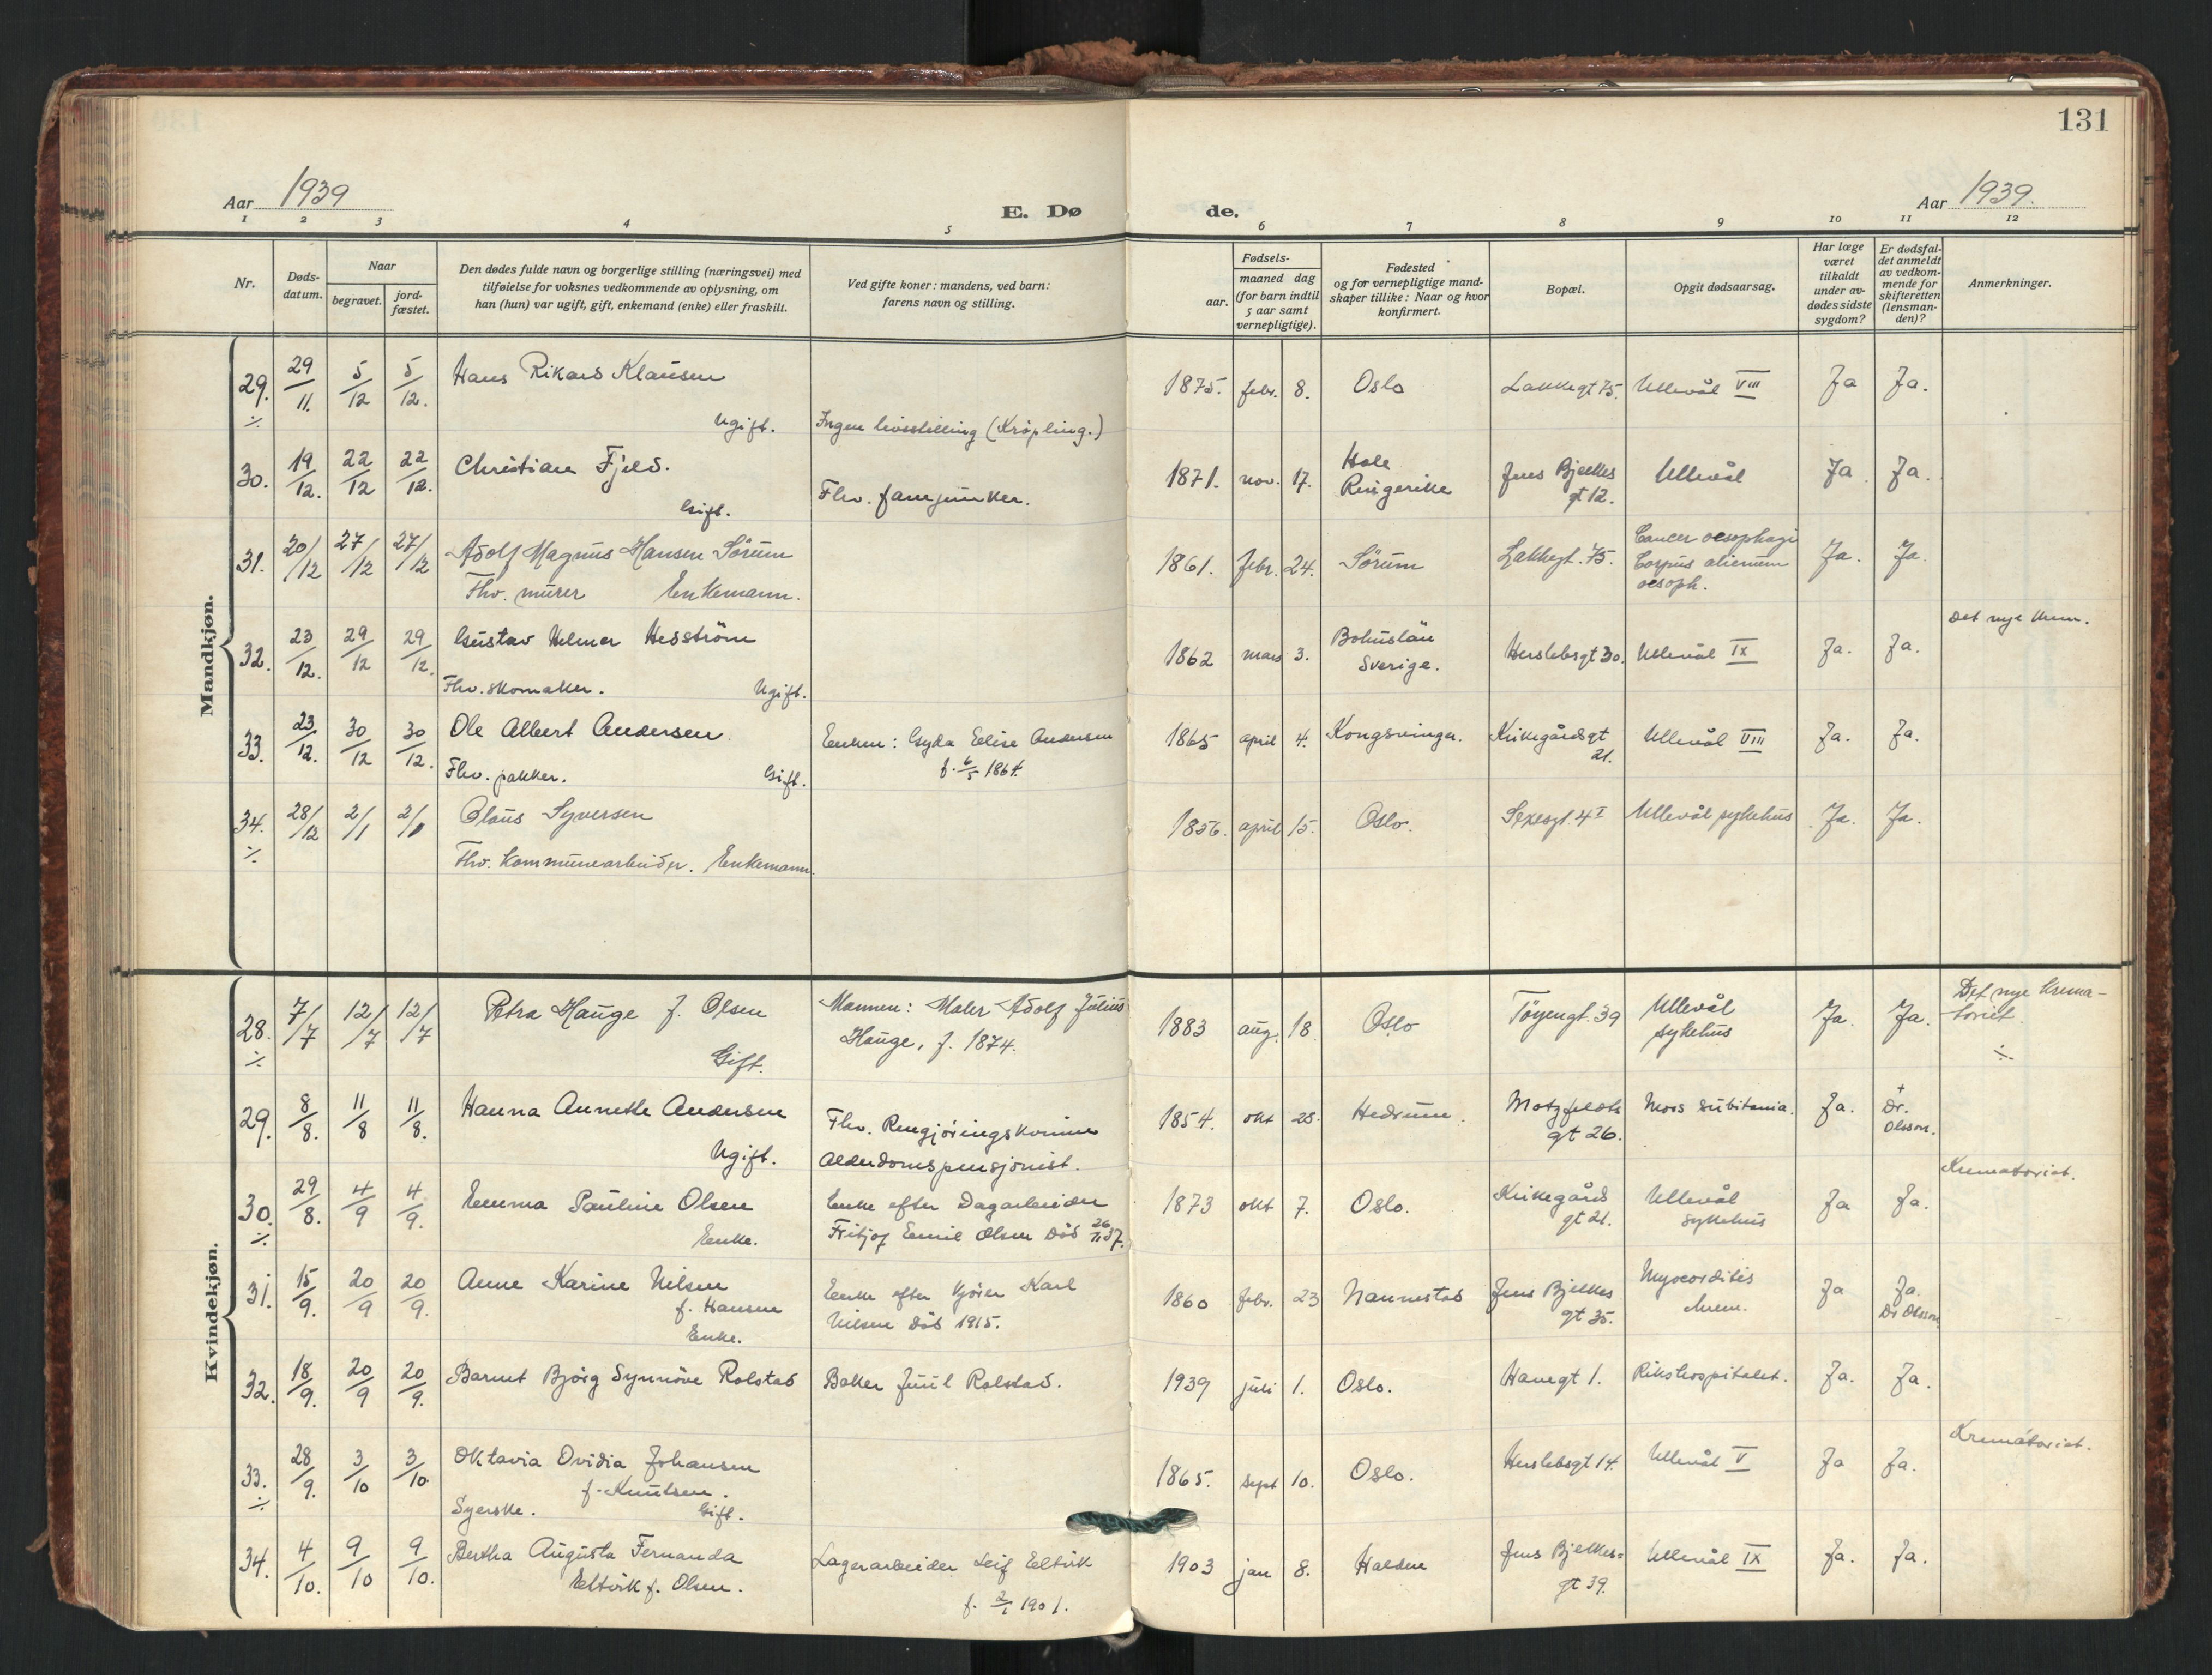 131
Aar 1939
E. Dø
de.
Aar 1939.
1 2 3 4 5 6 7 8 9 10 11 12
Nr.
Døds-
datum.
Naar
begravet.
jord-
fæstet.
Den dødes fulde navn og borgerlige stilling (næringsvei) med
tilføielse for voksnes vedkommende av oplysning, om
han (hun) var ugift, gift, enkemand (enke) eller fraskilt.
Ved gifte koner: mandens, ved barn:
farens navn og stilling.
Fødsels-
aar.
maaned dag
(for barn indtil
5 aar samt
vernepligtige).
Fødested
og for vernepligtige mand-
skaper tillike: Naar og hvor
konfirmert.
Bopæl.
Opgit dødsaarsag.
Har læge
været
tilkaldt
under av-
dødes sidste
sygdom?
Er dødsfal-
det anmeldt
av vedkom-
mende for
skifteretten
(lensman-
den)?
Anmerkninger.
Mandkjøn.
29. 29/11. 5/12 5/12. Hans Rikard Klausen 1875. febr. 8. Oslo Lakkegt 75. Ullevål VIII Ja Ja.
÷ Ugift. Ingen livsstilling (Krøpling.)
30. 19/12. 22/12 22/12. Christian Fjeld. Fhv. fanejunker. 1871. nov. 17. Hole
Ringerike Jens Bjelkes
gt 12. Ullevål Ja Ja.
Gift.
31. 20/12 27/12 27/12 Adolf Magnus Hansen Sörum 1861. febr. 24. Sörum Lakkegt. 75. Cancer oesophagi
Corpus alienum
oesoph. Ja. Ja.
Fhv. murer Enkemann.
32. 23/12. 29/12 29/12. Gustav Helmer Hesström 1862 mars 3. Bohuslän
Sverige. Herslebsgt 30. Ullevål IX Ja. Ja. Det nye krem.
Fhv. skomaker. Ugift.
33. 23/12. 30/12 30/12. Ole Albert Andersen. Enken: Gyda Elise Andersen
f. 6/5 1864. 1865 april 4. Kongsvinger. Kirkegårdsgt
21. Ullevål VIII Ja. Ja.
Fhv. pakker. Gift.
34. 28/12 2/1 2/1 Olaus Syversen 1856. april 15. Oslo. Sexesgt. 4 I Ullevål sykehus Ja. Ja.
÷ Fhv. kommunearbeider. Enkemann.
Kvindekjøn.
28. 7/7 12/7 12/7 Petra Hauge f. Olsen Mannen: Maler Adolf Julius
Hauge, f. 1874. 1883 aug. 18. Oslo Töyengt. 39 Ullevål
sykehus Ja. Ja. Det nye krema-
toriet.
÷ Gift. ÷
29. 8/8. 11/8 11/8. Hanna Annette Andersen Fhv. Rengjöringskvinne
Alderdomspensjonist. 1854. okt 28. Hedrum. Motzfeldts
gt 26. Mors subitania. Ja. +
Dr.
Olsson.
Ugift.
30. 29/8. 4/9 4/9. Emma Pauline Olsen Enke efter Dagarbeider
Fritjof Emil Olsen död 26/11 37. 1873 okt 7. Oslo. Kirkegårds
gt 21. Ullevål
sykehus Ja Ja. Krematoriet.
÷ Enke.
31. 15/9. 20/9 20/9. Anne Karine Nilsen
f. Hansen
Enke. Enke efter Kjörer Karl
Nilsen död 1915. 1860 febr. 23 Nannestad Jens Bjelkes
gt 35. Myocorditis
chron. Ja Ja.
Dr Olsson.
32. 18/9. 20/9 20/9. Barnet Bjørg Synnöve Rolstad Baker Juul Rolstad. 1939 juli 1. Oslo. Hanegt 1. Rikshospitalet. Ja. Ja.
33. 28/9. 3/10 3/10. Oktavia Ovidia Johansen
f. Knutsen.
÷ Syerske. Gift. 1865. sept 10. Oslo. Herslebsgt 14. Ullevål V Ja Ja. Krematoriet.
34. 4/10. 9/10 9/10. Bertha Augusta Fernanda
Eltvik f. Olsen. Lagerarbeider Leif Eltvik
f. 2/1 1901. 1903 jan 8. Halden Jens Bjelkes=
gt 39. Ullevål IX Ja. Ja.